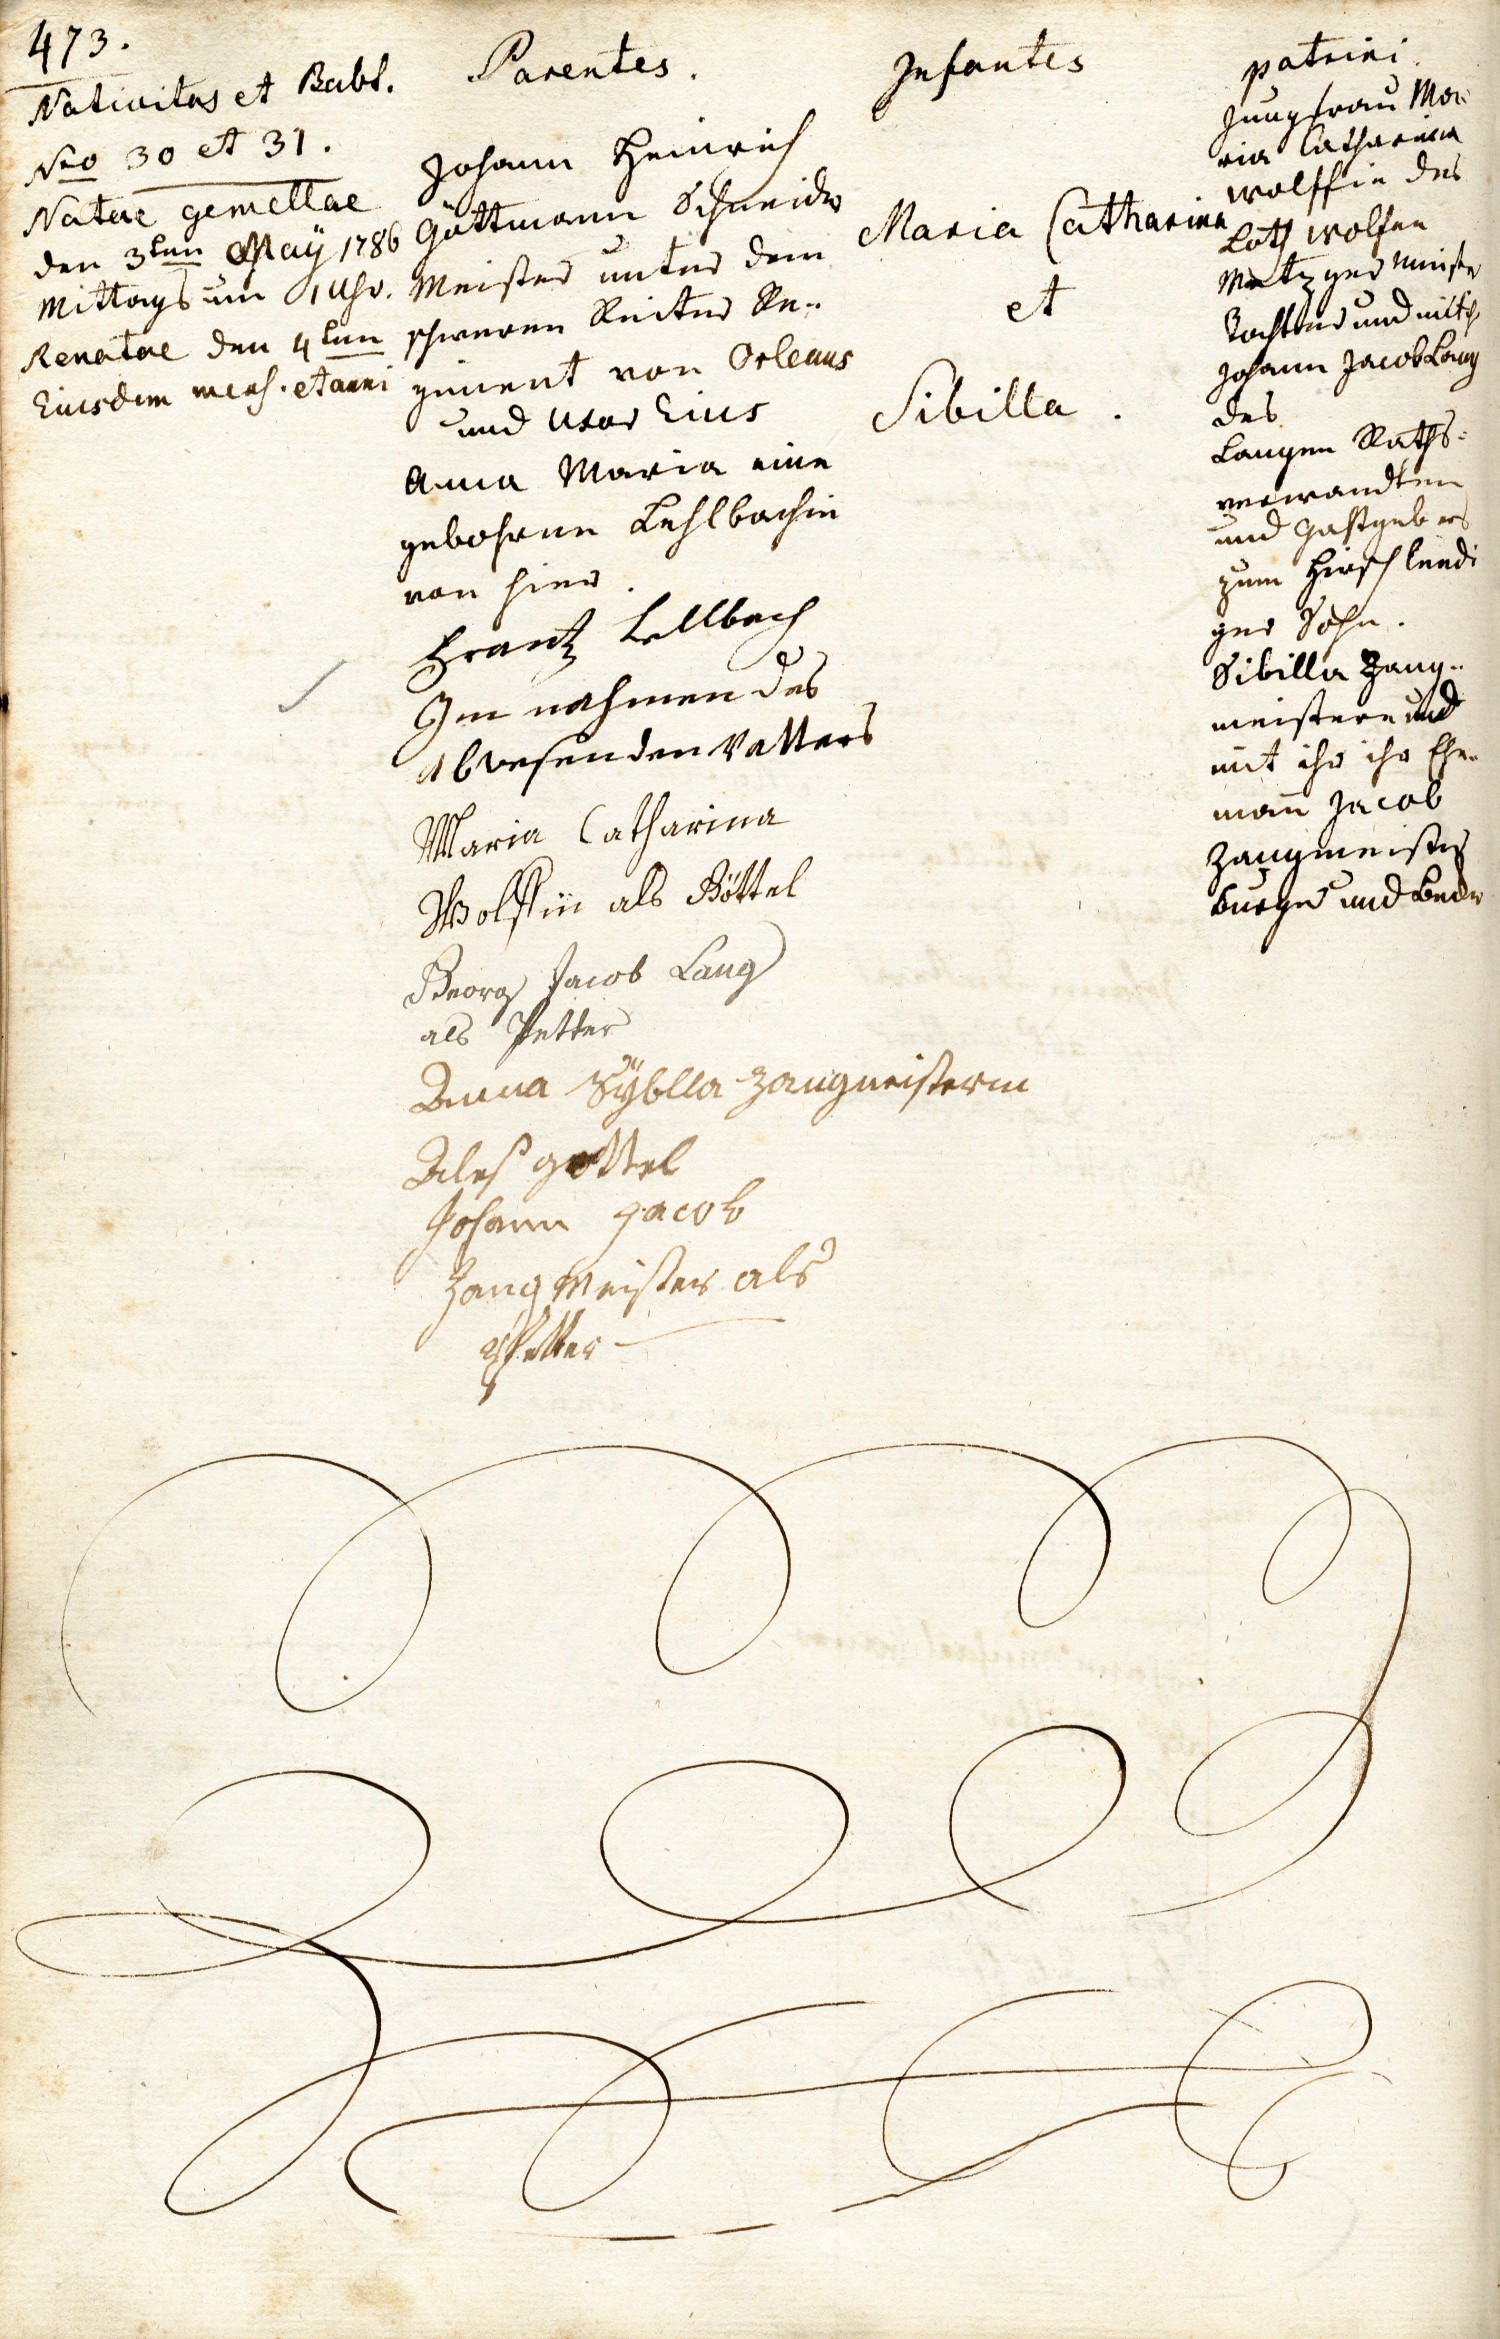 473.
Nativitas et Babt.
Nro 30 et 31.
Natae gemellae
den 3ten May 1786
Mittags um 1 Uhr.
Renatae den 4ten
Eiusdem mens. et anni
Parentes.
Johann Heinrich
Göttmann Schneider
Meister unter dem
schweren Reiter Re-
giment von Orleans
und Uxor Eius
Anna Maria eine
gebohrne Lehlbachin
von hier.
Frantz Lellbach
Im nahmen des
abwesenden Vatters
Maria Catharina
Wolffin als Göttel
Georg Jacob Lang
als Petter
Anna Sÿblla Zangmeisterin
Als gottel
Johann Jacob
Zang Meister als
Pfetter
Infantes
Maria Catharina
et
Sibilla.
patrini.
Jungfrau Ma-
ria Catharina
Wolffin des
Loth Wolfen
Metzger Meister
Tochter und mit ihr
Johann Jacob Lang
des
Langen Raths-
verwandten
und Gastgebers
zum Hirsch ledi
ger Sohn.
Sibilla Zang-
meistern und
mit ihr ihr Ehe-
mañ Jacob
Zangmeister
burger und